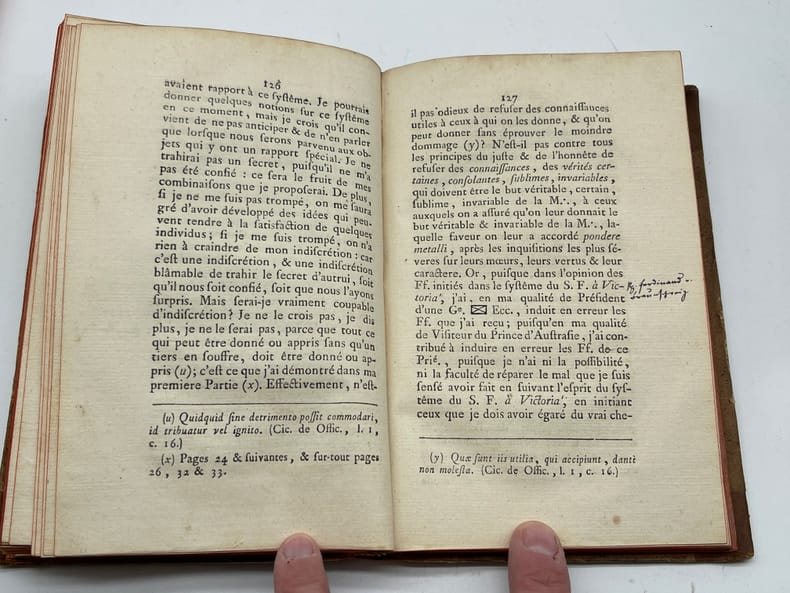 126
avaient rapport à ce ſyſtême. Je pourrais
donner quelques notions ſur ce ſyſtême
en ce moment, mais je crois qu'il con-
vient de ne pas anticiper & de n'en parler
que lorſque nous ſerons parvenu aux ob-
jets qui y ont un rapport ſpécial. Je ne
trahirai pas un ſecret, puiſqu'il ne m'a
pas été confié : ce ſera le fruit de mes
combinaiſons que je propoſerai. De plus,
ſi je ne me ſuis pas trompé, on me ſaura
gré d'avoir développé des idées qui peu-
vent tendre à la ſatisfaction de quelques
individus ; ſi je me ſuis trompé, on n'a
rien à craindre de mon indiſcrétion : car
c'eſt une indiſcrétion, & une indiſcrétion
blâmable de trahir le ſecret d'autrui, ſoit
qu'il nous ſoit confié, ſoit que nous l'ayons
ſurpris. Mais ſerai-je vraiment coupable
d'indiſcrétion? Je ne le crois pas, je dis
plus, je ne le ſerai pas, parce que tout ce
qui peut être donné ou appris ſans qu'un
tiers en ſouffre, doit être donné ou ap-
pris (u) ; c'eſt ce que j'ai démontré dans ma
premiere Partie (x). Effectivement, n'eſt-
(u) Quidquid ſine detrimento poſſit commodari,
id tribuatur vel ignito. (Cic. de Offic., l. 1,
c. 16.)
(x) Pages 24 & ſuivantes, & ſur-tout pages
26, 32 & 33.
127
il pas odieux de refuſer des connaiſſances
utiles à ceux à qui on les donne, & qu'on
peut donner ſans éprouver le moindre
dommage (y)? N'eſt-il pas contre tous
les principes du juſte & de l'honnête de
refuſer des connaiſſances, des vérités cer-
taines, conſolantes, ſublimes, invariables,
qui doivent être le but véritable, certain,
ſublime, invariable de la M∴, à ceux
auxquels on a aſſuré qu'on leur donnait le
but véritable & invariable de la M∴, la-
quelle faveur on leur a accordé pondere
metalli, après les inquiſitions les plus ſé-
veres ſur leurs mœurs, leurs vertus & leur
caractere. Or, puiſque dans l'opinion des
Ff. initiés dans le ſyſtême du S. F. à Vic-
ferdinand
toria, j'ai, en ma qualité de Préſident
d'une Ge. Ecc., induit en erreur les
Ff. que j'ai reçu ; puiſqu'en ma qualité
de Viſiteur du Prince d'Auſtraſie, j'ai con-
tribué à induire en erreur les Ff. de ce
Prié., puiſque je n'ai ni la poſſibilité,
ni la faculté de réparer le mal que je ſuis
ſenſé avoir fait en ſuivant l'eſprit du ſyſ-
tême du S. F. à Victoria, en initiant
ceux que je dois avoir égaré du vrai che-
(y) Quæ ſunt iis utilia, qui accipiunt, danti
non moleſta. (Cic. de Offic., l. 1, c. 16.)